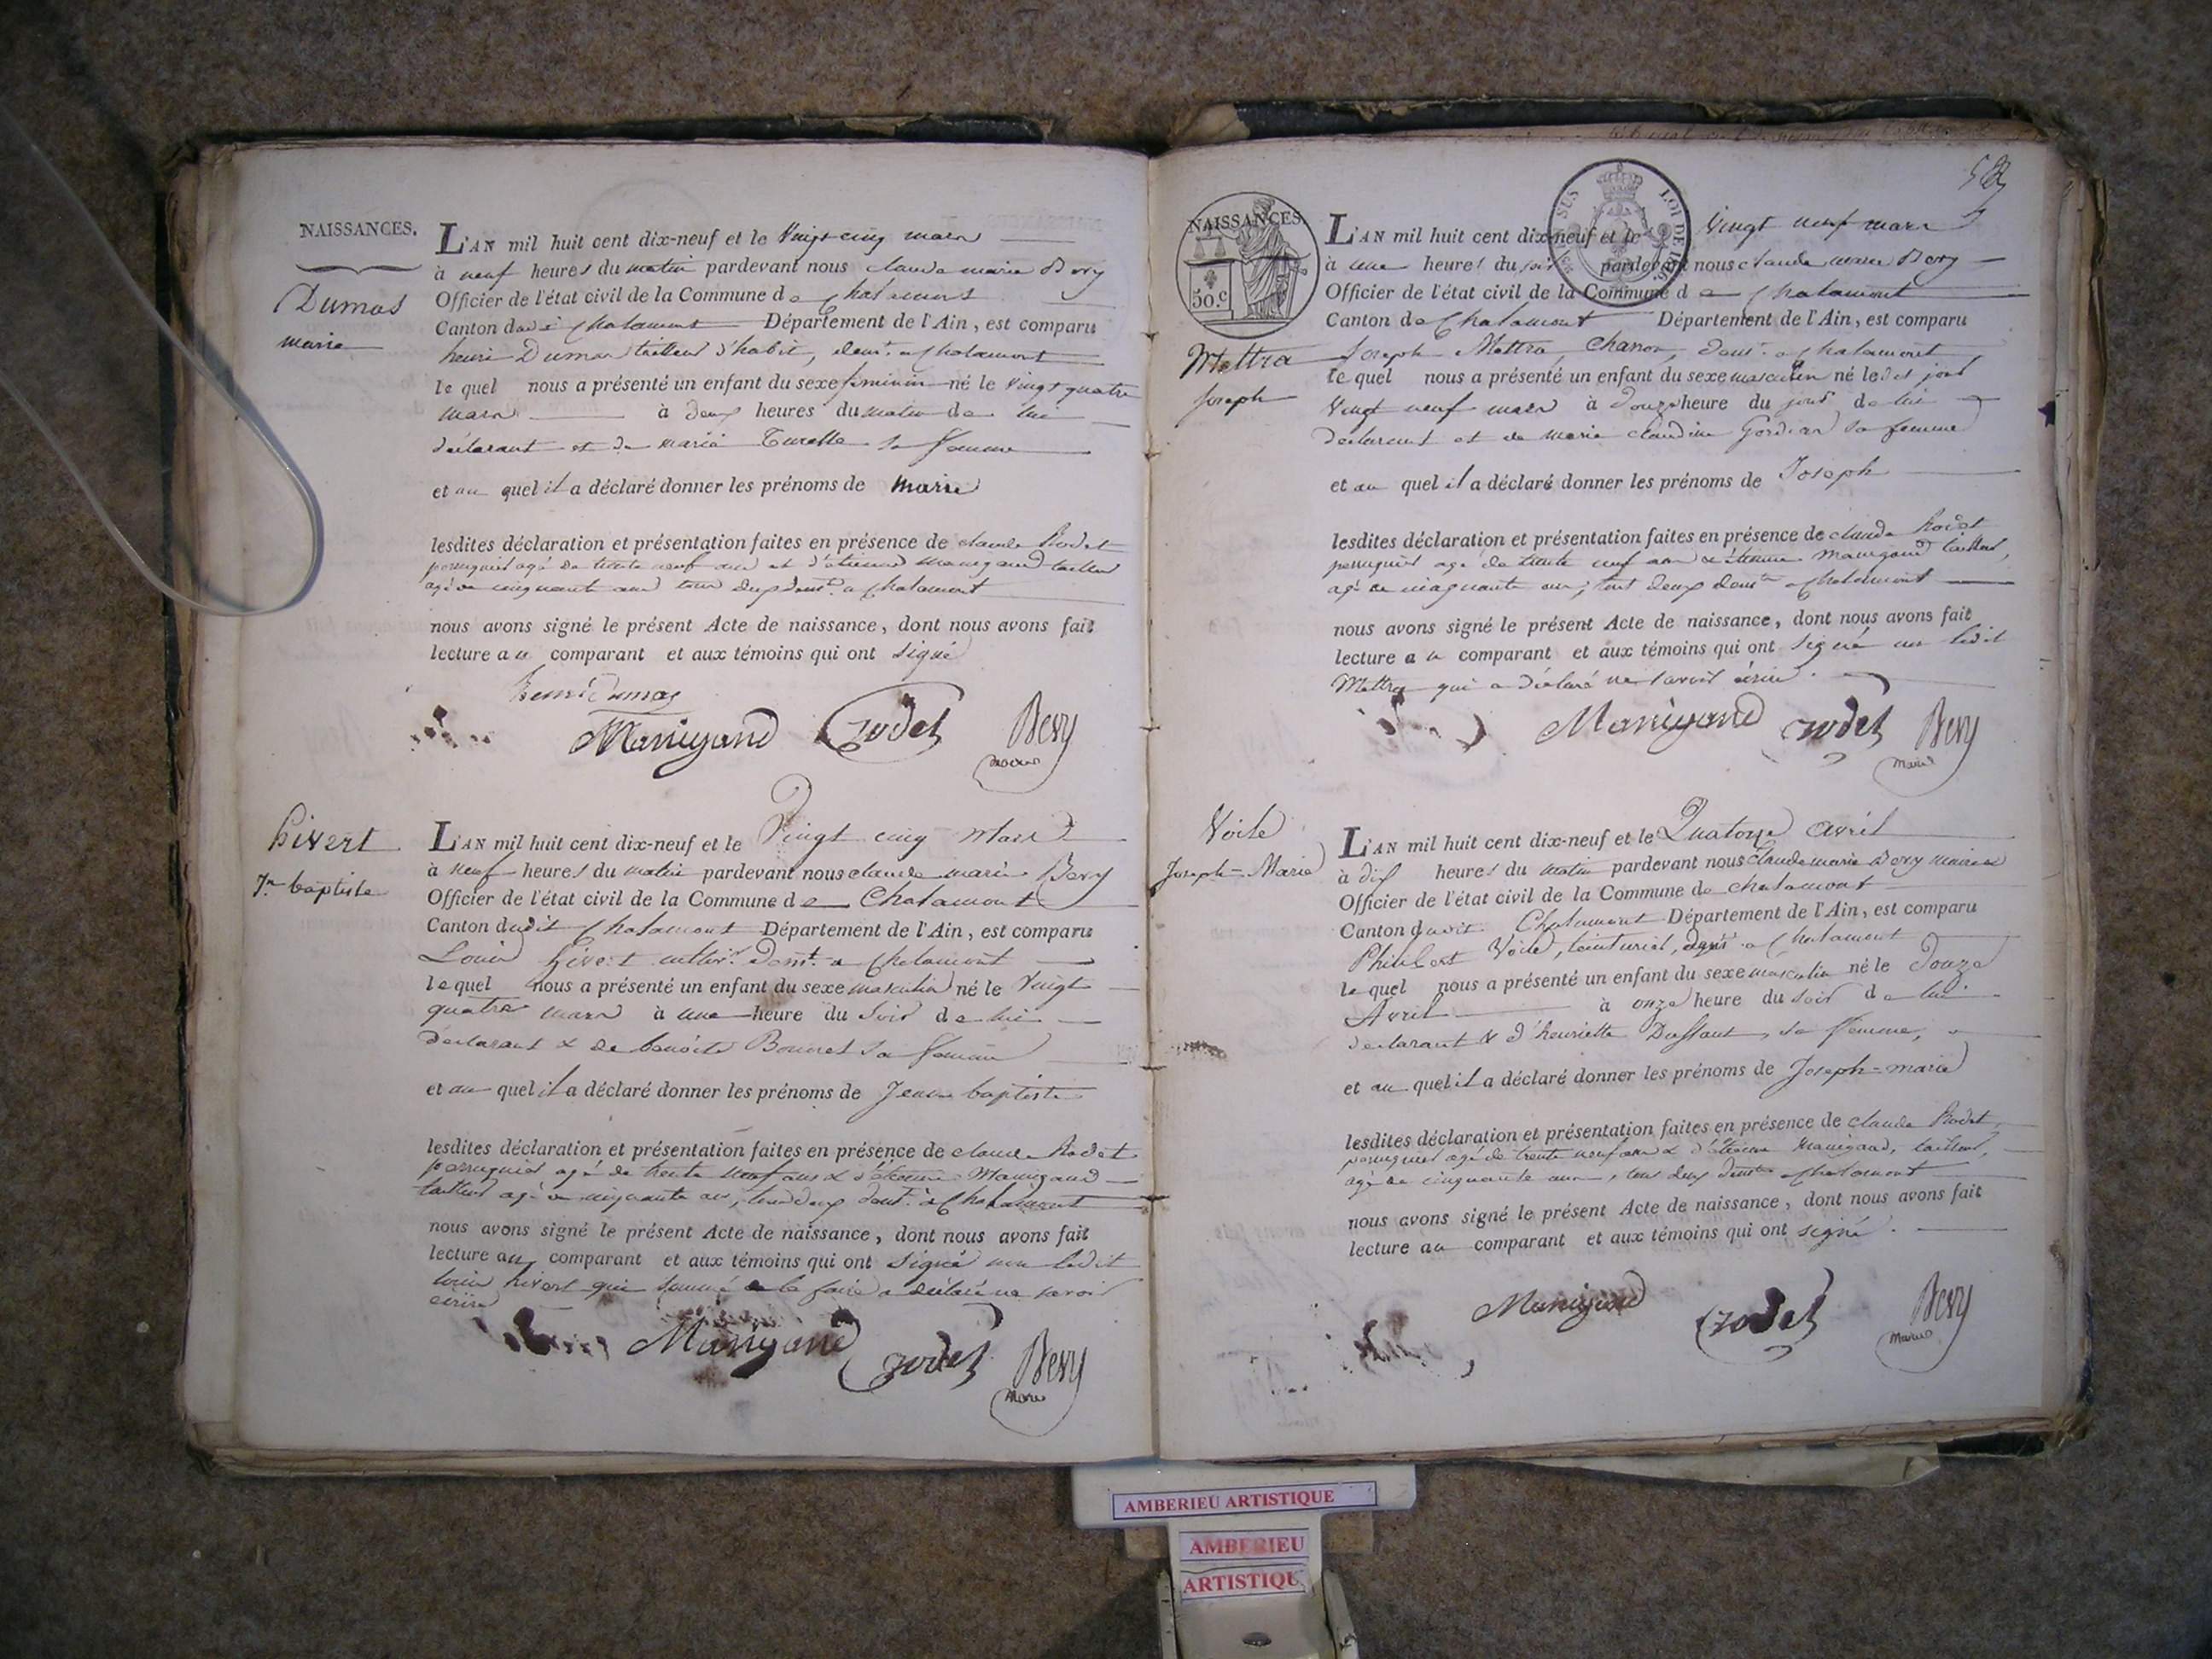 NAISSANCES.
Dumas
marie
L'AN mil huit cent dix-neuf et le Vingt cinq mars
à neuf heures du matin pardevant nous claude marie Bevy
Officier de l'état civil de la Commune de Chalamont
Canton de Chalamont Département de l'Ain, est comparu
henri Dumas tailleur d'habit, demt. a Chalamont
le quel nous a présenté un enfant du sexe feminin né le vingt quatre
mars à deux heures du matin de lui
declarant et de marie sa femme
et au quel il a déclaré donner les prénoms de marie
lesdites déclaration et présentation faites en présence de claude Rodet
perruquier agé de trente neuf ans et d'étienne Manigand tailleur
agé de cinquante ans tous deux demt. a Chalamont
nous avons signé le présent Acte de naissance, dont nous avons fait
lecture au comparant et aux témoins qui ont signé
henri Dumas
Manigand Rodet Bevy
maire
hivert
Jn. baptiste
L'AN mil huit cent dix-neuf et le Vingt cinq Mars
à neuf heures du matin pardevant nous claude marie Bevy
Officier de l'état civil de la Commune de Chalamont
Canton dudit Chalamont Département de l'Ain, est comparu
Louis hivert cultivr. demt. a Chalamont
le quel nous a présenté un enfant du sexe masculin né le Vingt
quatre mars à une heure du soir de lui
declarant & de benoite sa femme
et au quel il a déclaré donner les prénoms de Jean baptiste
lesdites déclaration et présentation faites en présence de claude Rodet
perruquier agé de trente neuf ans & d'étienne Manigand
tailleur agé de cinquante ans, tous deux demt. à Chalamont
nous avons signé le présent Acte de naissance, dont nous avons fait
lecture au comparant et aux témoins qui ont signé non ledit
louis hivert qui sommé de le faire a déclaré ne savoir
écrire
Manigand Rodet Bevy
maire
NAISSANCES.
50.c
LOI DE 1816.
Mettra
Joseph
L'AN mil huit cent dix-neuf et le Vingt neuf mars
à une heures du soir pardevant nous claude marie Bevy
Officier de l'état civil de la Commune de Chalamont
Canton de Chalamont Département de l'Ain, est comparu
Joseph Mettra, demt. a Chalamont
le quel nous a présenté un enfant du sexe masculin né le dit jour
Vingt neuf mars à douze heure du jour de lui
declarant et de marie claudine sa femme
et au quel il a déclaré donner les prénoms de Joseph
lesdites déclaration et présentation faites en présence de claude Rodet
perruquier agé de trente neuf ans & étienne Manigand tailleur,
agé de cinquante ans, tous deux demts. a Chalamont
nous avons signé le présent Acte de naissance, dont nous avons fait
lecture au comparant et aux témoins qui ont signé non ledit
Mettra qui a déclaré ne savoir écrire.
Manigand Rodet Bevy
maire
Voile
Joseph=Marie
L'AN mil huit cent dix-neuf et le Quatorze avril
à dix heures du matin pardevant nous claude marie Bevy maire
Officier de l'état civil de la Commune de chalamont
Canton dudit Chalamont Département de l'Ain, est comparu
Philibert Voile, teinturier, demt. a Chalamont
le quel nous a présenté un enfant du sexe masculin né le douze
Avril à onze heure du soir de lui
declarant & d'henriette Dussaut, sa femme,
et au quel il a déclaré donner les prénoms de Joseph=marie
lesdites déclaration et présentation faites en présence de claude Rodet,
perruquier agé de trente neuf ans & d'étienne Manigand, tailleur,
agé de cinquante ans, tous deux demts. a Chalamont
nous avons signé le présent Acte de naissance, dont nous avons fait
lecture au comparant et aux témoins qui ont signé.
Manigand Rodet Bevy
maire
AMBERIEU ARTISTIQUE
AMBERIEU
ARTISTIQU